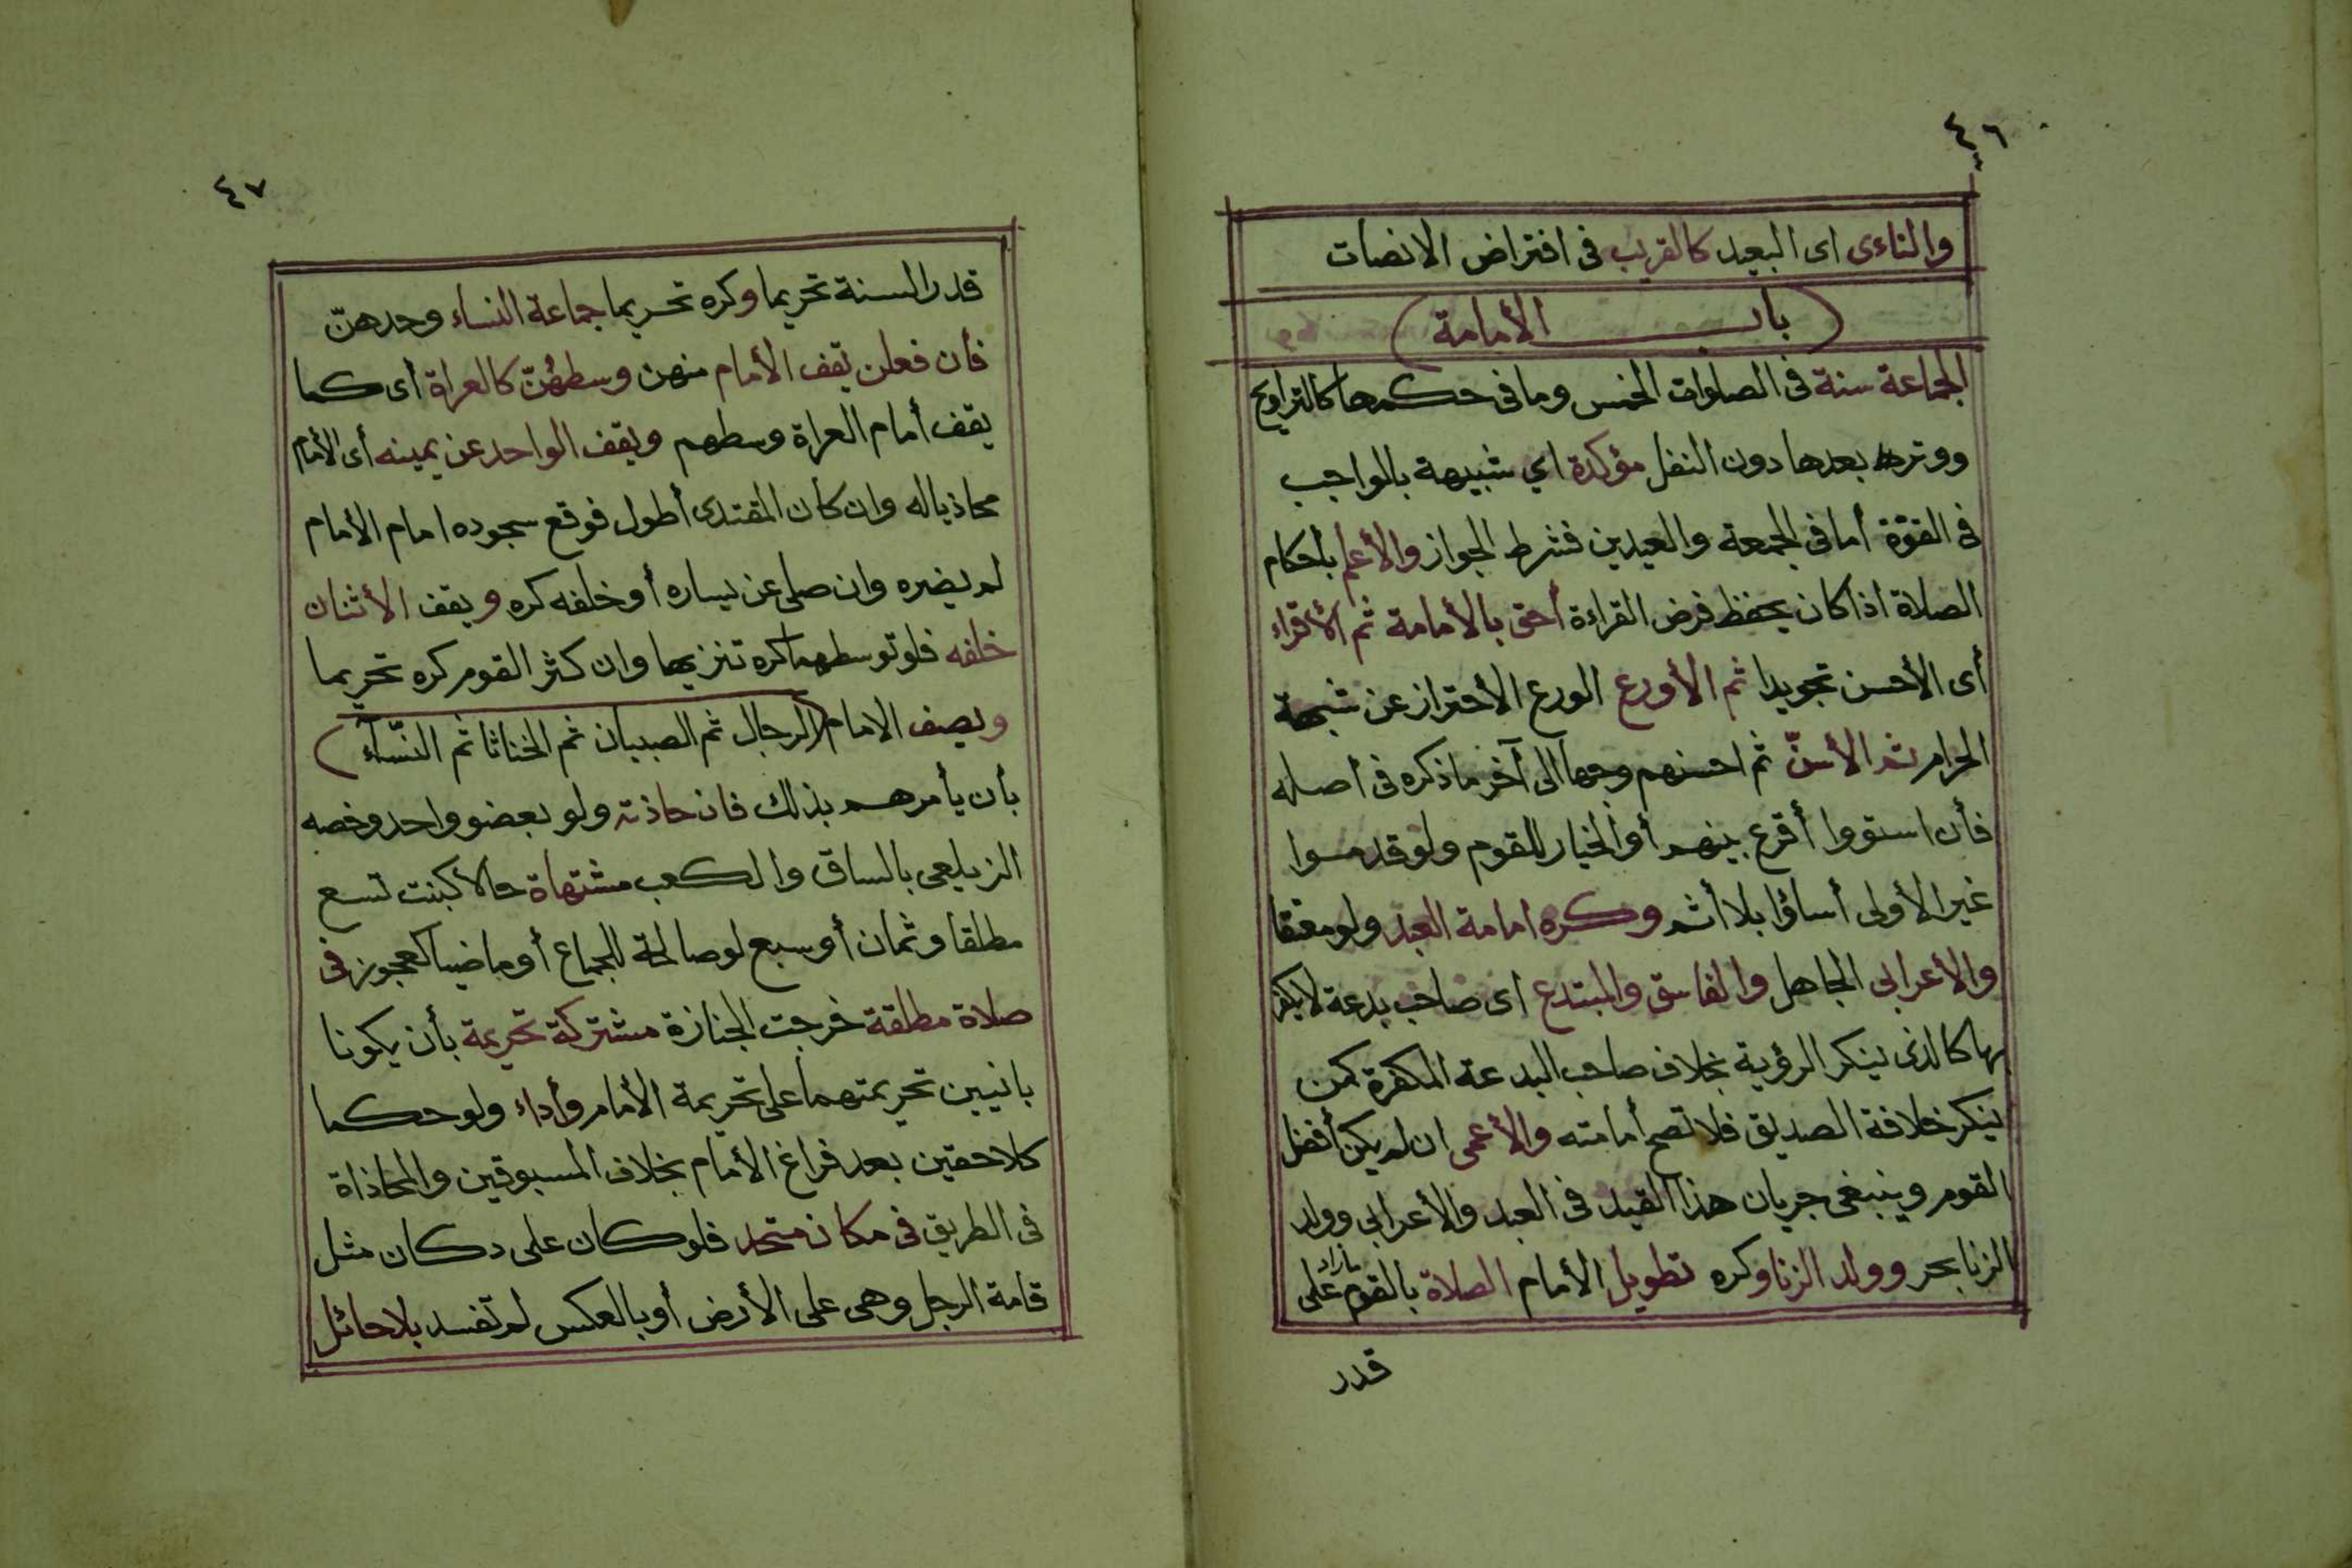 ٤٦
والناءى اى البعيد كالقريب فى افتراض الانصات
(باب الأمامة)
الجماعة سنة فى الصلوات الخمس وما فى حكمها كالتراويح
ووترها بعدها دون النفل مؤكدة اي شبيهة بالواجب
فى القوّة أما فى الجمعة والعيدين فشرط الجواز والأعلم بأحكام
الصلاة اذا كان يحفظ فرض القراءة أحق بالأمامة ثم الأقراء
أى الأحسن تجويدا ثم الأورع الورع الأحتراز عن شبهة
الحرام ثم الأسنّ ثم احسنهم وجها الى آخر ما ذكره فى أصله
فأن استووا أقرع بينهم أو الخيار للقوم ولو قدموا
غير الأولى أساؤا بلا أثم وكره امامة العبد ولو معتقا
والأعرابى الجاهل والفاسق والمبتدع اى صاحب بدعة لا يكفر
بها كالذى ينكر الرؤية بخلاف صاحب البدعة المكفرة كمن
ينكر خلافة الصديق فلا تصح أمامته والأعمى ان لم يكن أفضل
القوم وينبغى جريان هذا القيد فى العبد والأعرابى وولد
الزنا بحر وولد الزنا وكره تطويل الأمام الصلاة بالقوم مازاد على
قدر
٤٧
قدر السنة تحريما وكره تحريما جماعة النساء وحدهنّ
فأن فعلن يقف الأمام منهن وسطهُنّ كالعراة أى كما
يقف أمام العراة وسطهم ويقف الواحد عن يمينه أى الأمام
محاذيا له وان كان المقتدى أطول فوقع سجوده امام الأمام
لم يضره وان صلى عن يساره أو خلفه كره ويقف الأثنان
خلفه فلو توسطهما كره تنزيها وان كثر القوم كره تحريما
ويصف الامام (الرجال ثم الصبيان ثم الخناثا ثم النّساء)
بأن يأمرهم بذلك فان حاذته ولو بعضو واحد وخصه
الزيلعى بالساق والكعب مشتهاة حالا كبنت تسع
مطلقا وثمان أو سبع لو صالحة للجماع أو ماضيا كعجوز فى
صلاة مطلقة خرجت الجنازة مشتركة تحريمة بأن يكونا
بانيين تحريمتهما على تحريمة الأمام وأداء ولو حكما
كلاحقين بعد فراغ الأمام بخلاف المسبوقين والمحاذاة
فى الطريق فى مكان متحد فلو كان على دكان مثل
قامة الرجل وهى على الأرض أو بالعكس لم تفسد بلا حائل